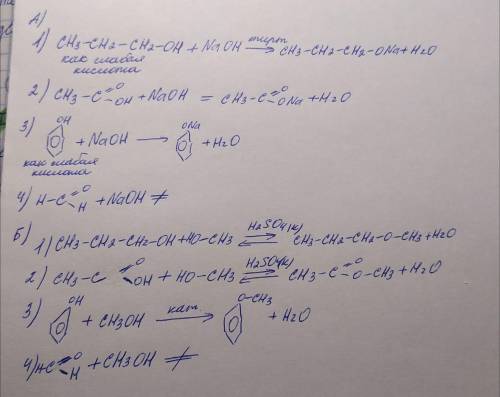 А)
1) CH3-CH2-CH2-OH + NaOH ⟶ спирт CH3-CH2-CH2-ONa + H2O
как слабая
кислота
2) CH3-C=O OH + NaOH = CH3-C=O ONa + H2O
3) OH + NaOH ⟶ ONa + H2O
как слабая
кислота
4) H-C=O H + NaOH ≠
Б)
1) CH3-CH2-CH2-OH + HO-CH3 H2SO4(к) ⇄ CH3-CH2-CH2-O-CH3 + H2O
2) CH3-C=O OH + HO-CH3 H2SO4(к) ⇄ CH3-C=O O-CH3 + H2O
3) OH + CH3OH кат ⟶ O-CH3 + H2O
4) HC=O H + CH3OH ≠